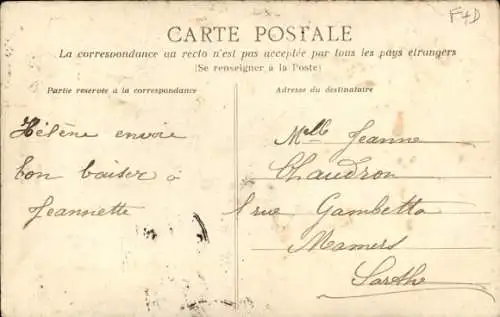 F4D
CARTE POSTALE
La correspondance au recto n'est pas acceptée par tous les pays étrangers
(Se renseigner à la Poste)
Partie reservée à la correspondance
Adresse du destinataire
Hélène envoie
bon baiser à
Jeannette
Melle Jeanne
Chaudron
1 rue Gambetta
Mamers
Sarthe